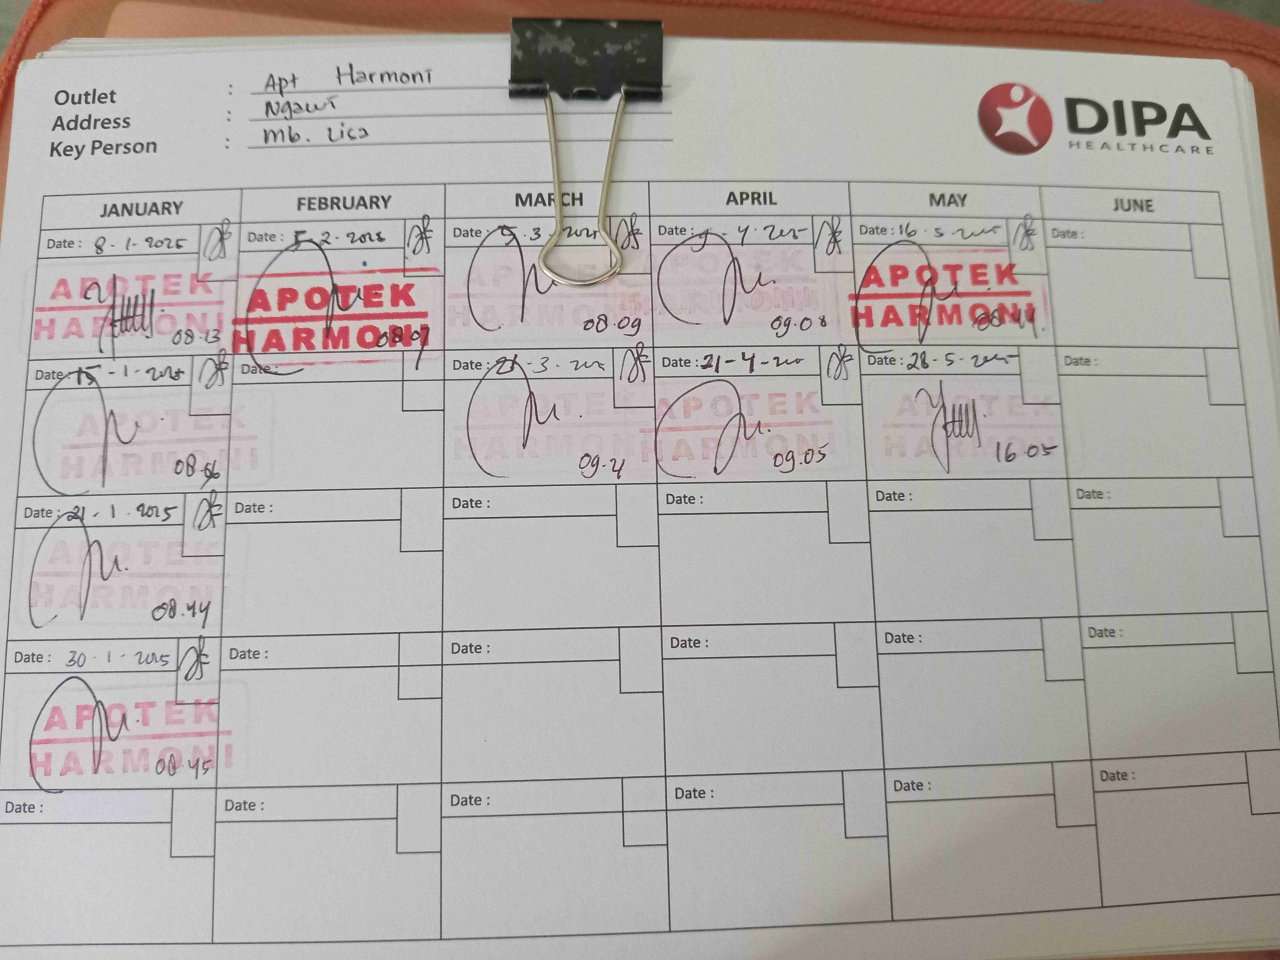 Outlet : Apt Harmoni
Address : Ngawi
Key Person : Mb. Lica
DIPA
HEALTHCARE
JANUARY FEBRUARY MARCH APRIL MAY JUNE
Date : 8-1-2025 Date : 5-2-2025 Date : 5-3-2025 Date : -4-2025 Date : 16-5-2025 Date :
APOTEK APOTEK APOTEK APOTEK APOTEK
HARMONI HARMONI HARMONI HARMONI HARMONI
08.13 08.07 08.09 09.08
Date : 15-1-2025 Date : Date : 21-3-2025 Date : 21-4-2025 Date : 28-5-2025 Date :
APOTEK APOTEK APOTEK APOTEK
HARMONI HARMONI HARMONI HARMONI
08.56 09.21 09.05 16.05
Date : 21-1-2025 Date : Date : Date : Date : Date :
APOTEK
HARMONI
08.44
Date : 30-1-2025 Date : Date : Date : Date : Date :
APOTEK
HARMONI
08.45
Date : Date : Date : Date : Date : Date :